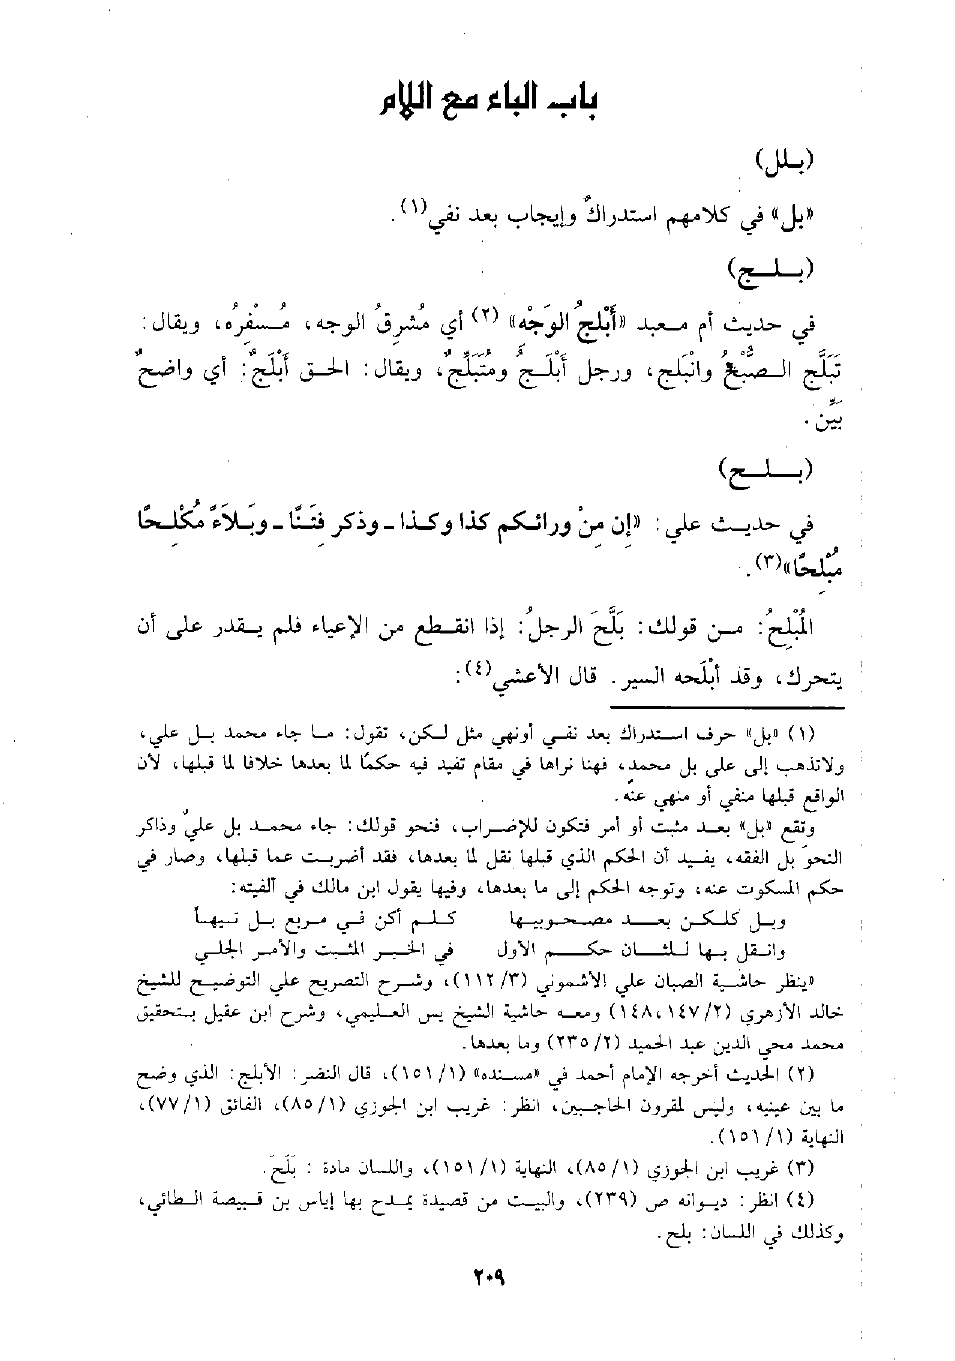 باب الباء مع اللام
(بلل)
«بل» في كلامهم استدراكٌ وإيجاب بعد نفي(١).
(بلج)
في حديث أم معبد «أَبْلجُ الوَجْه» (٢) أي مُشرِقُ الوجه، مُسْفِرُه، ويقال:
تَبَلَّج الصُّبْحُ وانْبَلج، ورجل أَبْلَجُ ومُتَبَلِّجٌ، ويقال: الحق أَبْلَجٌ: أي واضحٌ
بيّن.
(بلح)
في حديث علي: «إن مِنْ ورائكم كذا وكذا ـ وذكر فِتَنًا ـ وبَلاَءً مُكْلِحًا
مُبْلِحًا»(٣).
المُبْلِحُ: من قولك: بَلَّحَ الرجلُ: إذا انقطع من الإعياء فلم يقدر على أن
يتحرك، وقد أبْلَحه السير. قال الأعشى(٤):
(١) «بل» حرف استدراك بعد نفي أونهي مثل لكن، تقول: ما جاء محمد بل علي،
ولاتذهب إلى علي بل محمد، فهنا نراها في مقام تفيد فيه حكمًا لما بعدها خلافا لما قبلها، لأن
الواقع قبلها منفي أو منهي عنه.
وتقع «بل» بعد مثبت أو أمر فتكون للإضراب، فنحو قولك: جاء محمد بل عليٌ وذاكر
النحوَ بل الفقه، يفيد أن الحكم الذي قبلها نقل لما بعدها، فقد أضربت عما قبلها، وصار في
حكم المسكوت عنه، وتوجه الحكم إلى ما بعدها، وفيها يقول ابن مالك في ألفيته:
وبل كلكن بعد مصحوبيها كلم أكن في مربع بل تيهاً
وانقل بها للثان حكم الأول في الخبر المثبت والأمر الجلي
«ينظر حاشية الصبان علي الأشموني (٣/ ١١٢)، وشرح التصريح علي التوضيح للشيخ
خالد الأزهري (٢/ ١٤٧، ١٤٨) ومعه حاشية الشيخ يس العليمي، وشرح ابن عقيل بتحقيق
محمد محي الدين عبد الحميد (٢/ ٢٣٥) وما بعدها.
(٢) الحديث أخرجه الإمام أحمد في «مسنده» (١/ ١٥١)، قال النضر: الأبلج: الذي وضح
ما بين عينيه، وليس لمقرون الحاجبين، انظر: غريب ابن الجوزي (١/ ٨٥)، الفائق (١/ ٧٧)،
النهاية (١/ ١٥١).
(٣) غريب ابن الجوزي (١/ ٨٥)، النهاية (١/ ١٥١)، واللسان مادة : بَلَحَ.
(٤) انظر: ديوانه ص (٢٣٩)، والبيت من قصيدة يمدح بها إياس بن قبيصة الطائي،
وكذلك في اللسان: بلح.
٢٠٩